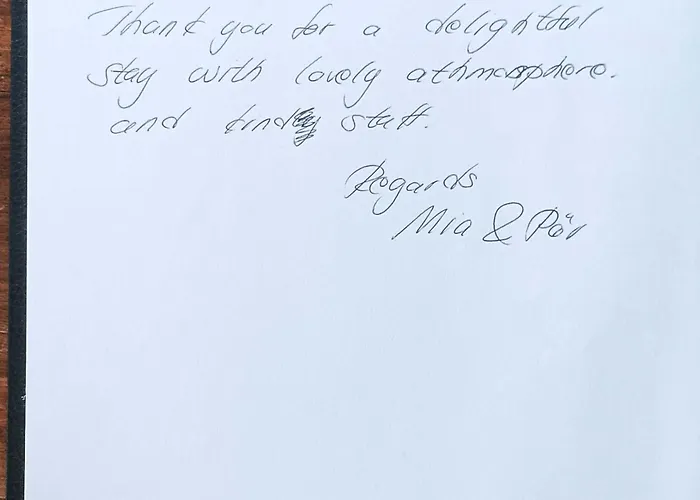 Thank you for a delightful
stay with lovely athmosphere.
and kind staff.
Regards
Mia & Pär